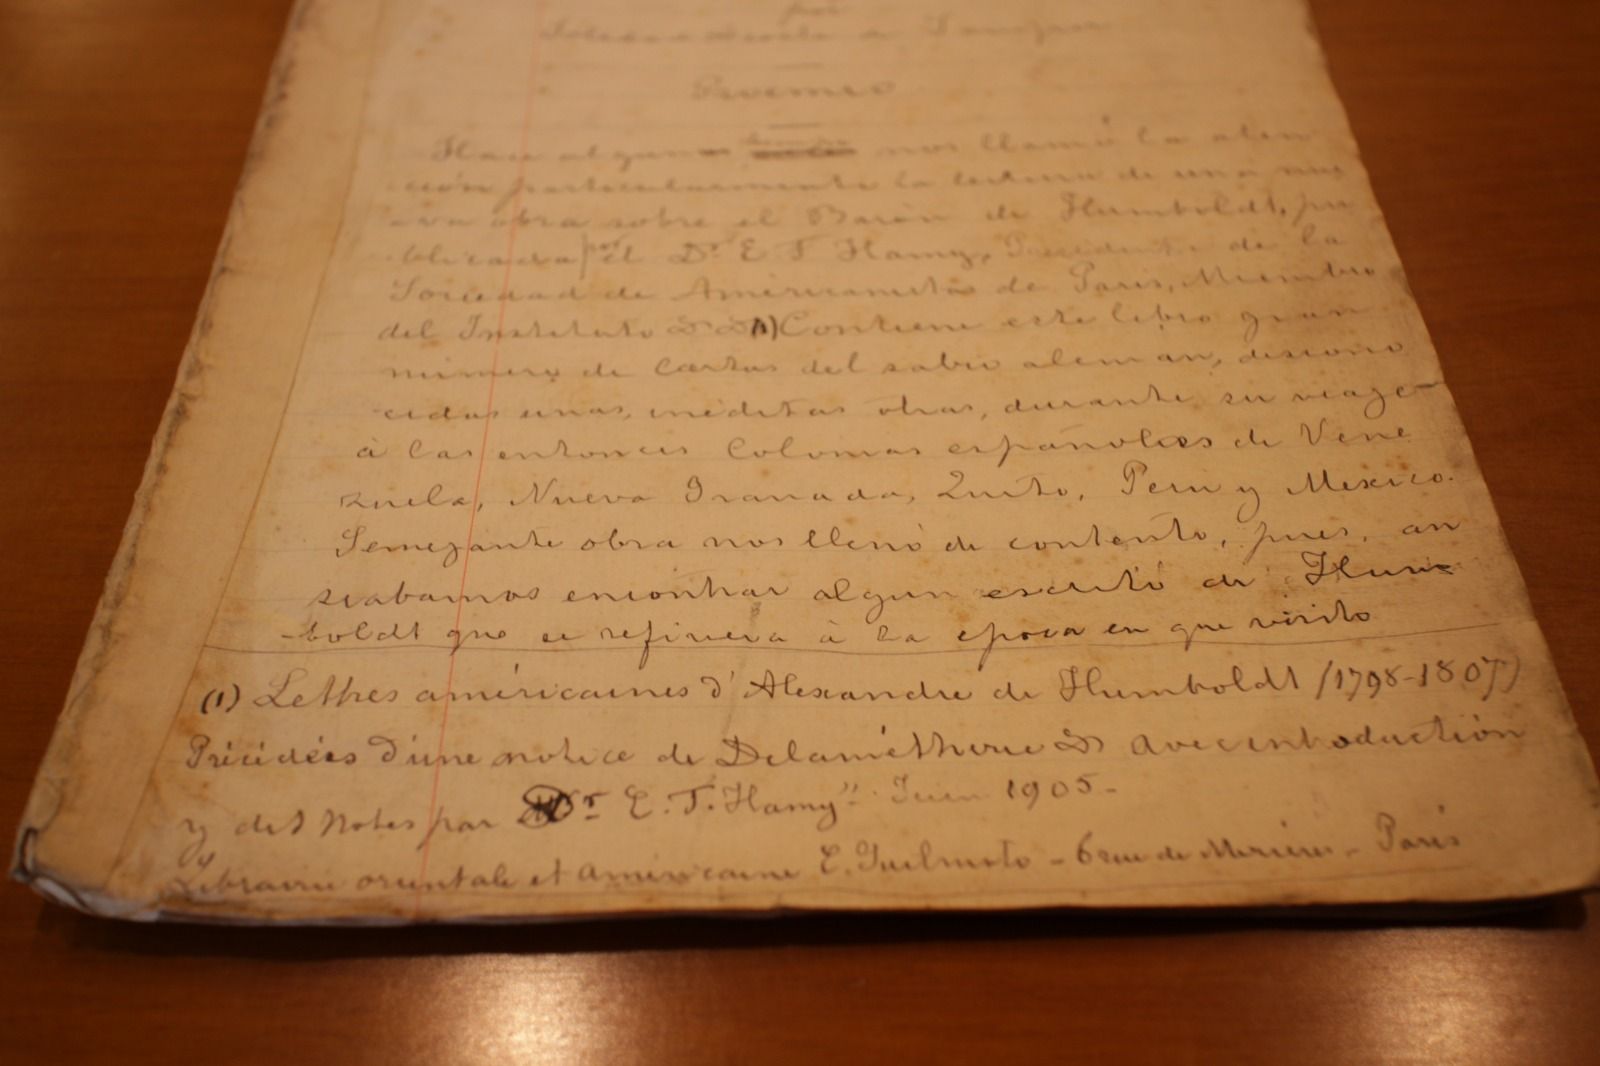 por
Proemio
Hace algun tiempo nos llamó la aten
ción particularmente la lectura de una nue
-va obra sobre el Barón de Humboldt, pu
blicada por el Dr. E T Hamy, Presidente de la
Sociedad de Americanistas de Paris, Miembro
del Instituto & & (1) Contiene este libro gran
número de cartas del sabio aleman, descono
cidas unas, inéditas otras, durante su viage
à las entonces Colonias españolas de Vene
zuela, Nueva Granada, Quito, Perú y Mexico.
Semejante obra nos llenó de contento, pues, an
siabamos encontrar algun escrito de Hum
-boldt que se refiriera à la epoca en que visito
(1) Lettres américaines d'Alexandre de Humboldt (1798-1807)
Précédées d'une notice de Delamétherie & avec introduction
y des Notes par Dr E. T. Hamy" Juin 1905-
Librairie orientale et américaine E. Guilmoto - 6 rue de Mézières - Paris